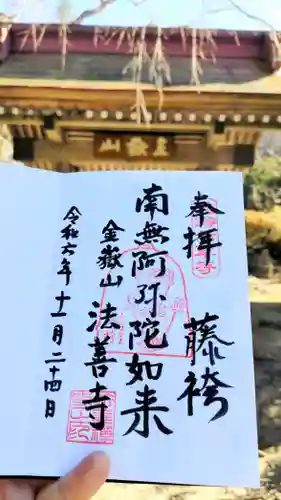 奉拝 藤袴
南無阿弥陀如来
金嶽山 法善寺
令和六年十一月二十四日
山嶽金